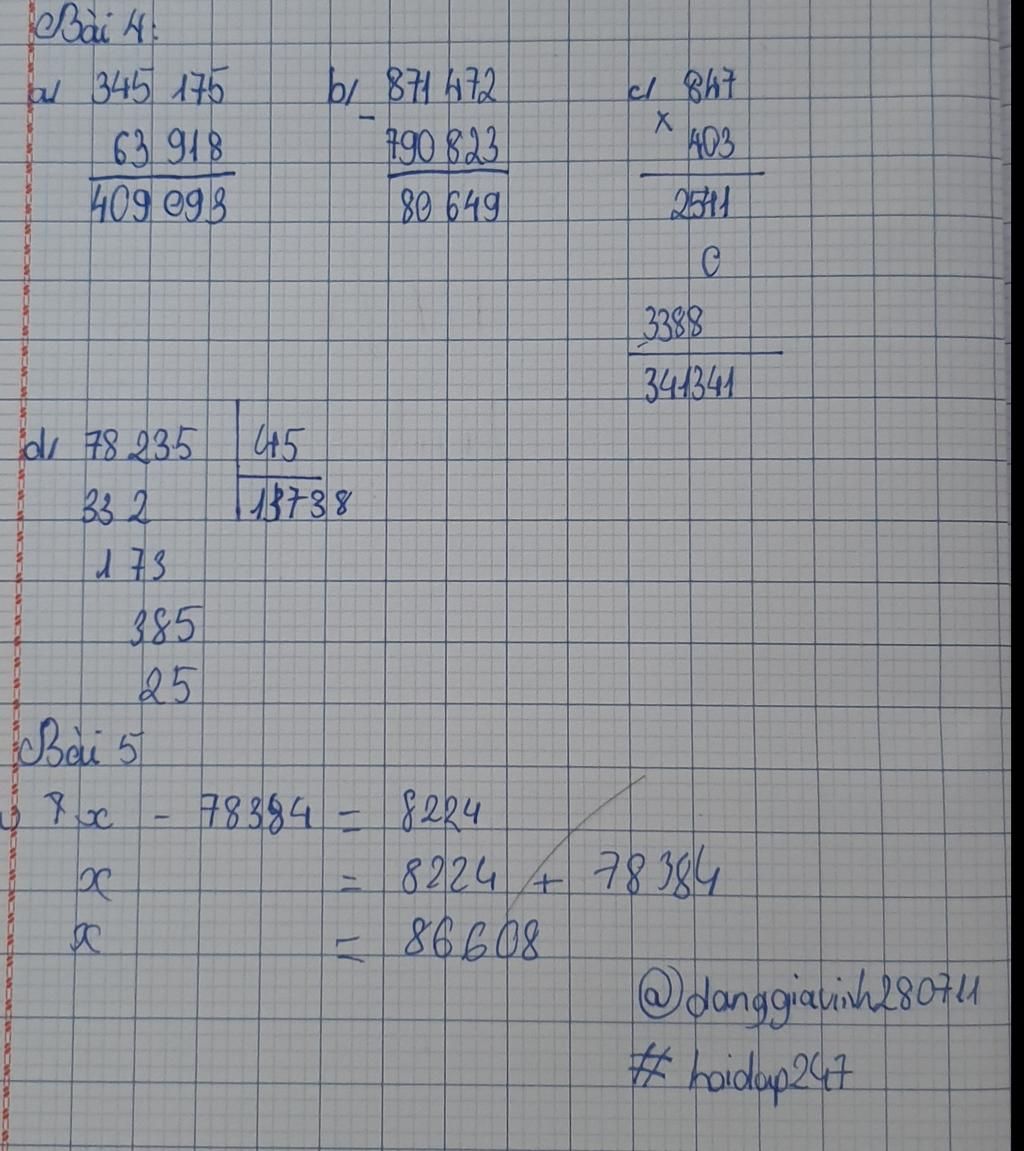 Bài 4:
a/ 345 175 b/ 871 472 c/ 847
- x
63 918 790 823 403
409 093 80 649 2541
0
3388
341341
d/ 78 235 45
33 2 1738
1 73
385
25
Bài 5
x - 78384 = 8224
x = 8224 + 78384
x = 86608
@danggiavinh280711
# hoidap247